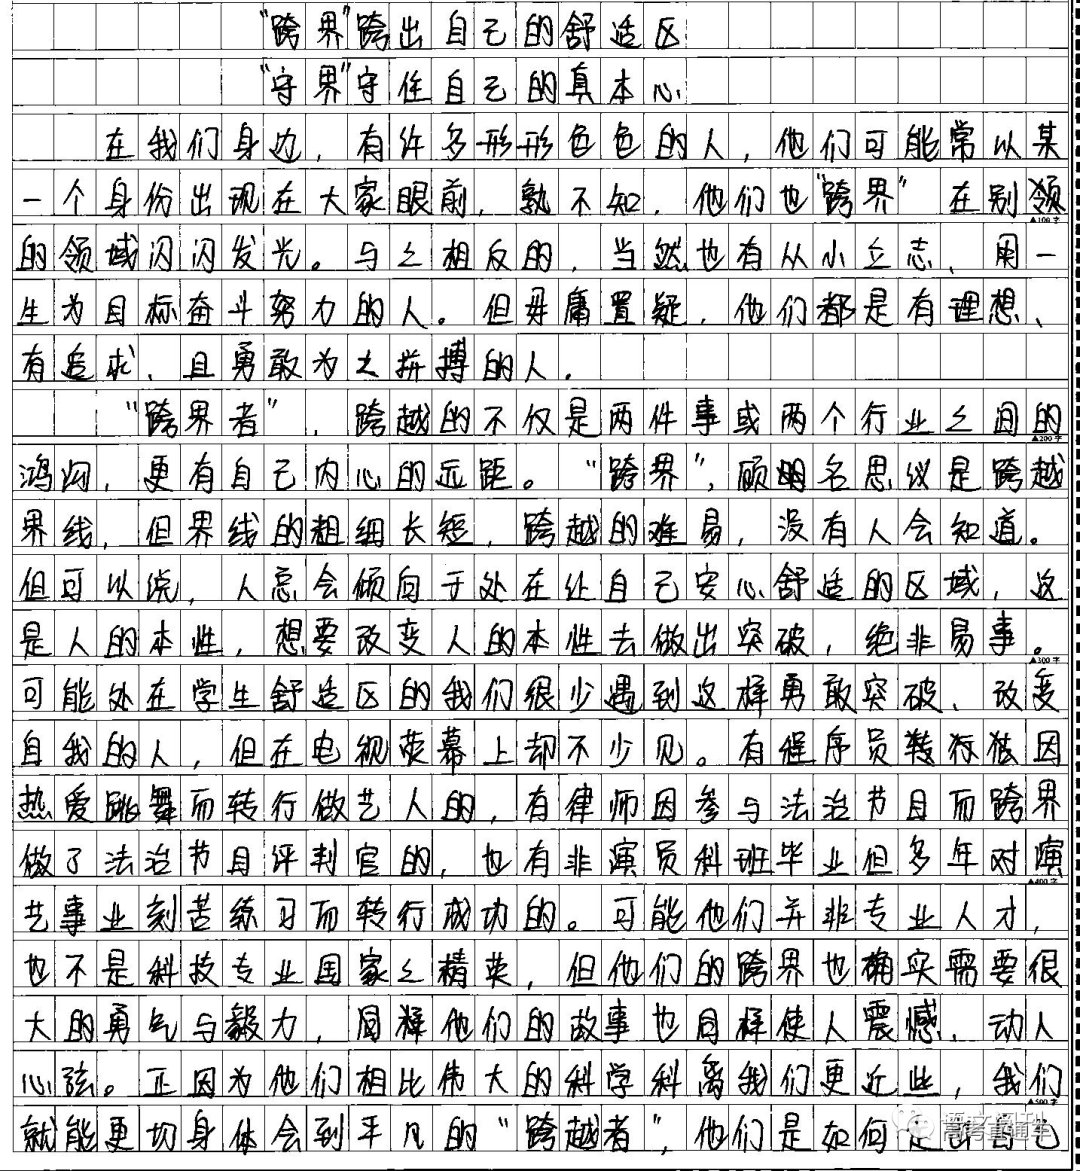 “跨界”跨出自己的舒适区
“守界”守住自己的真本心
在我们身边，有许多形形色色的人，他们可能常以某
一个身份出现在大家眼前，孰不知，他们也“跨界”在别领
的领域闪闪发光。与之相反的，当然也有从小立志、用一
生为目标奋斗努力的人。但毋庸置疑，他们都是有理想、
有追求、且勇敢为之拼搏的人。
“跨界者”，跨越的不仅是两件事或两个行业之间的
鸿沟，更有自己内心的远距。“跨界”，顾名思议是跨越
界线，但界线的粗细长短，跨越的难易，没有人会知道。
但可以说，人总会倾向于处在让自己安心舒适的区域，这
是人的本性，想要改变人的本性去做出突破，绝非易事。
可能处在学生舒适区的我们很少遇到这样勇敢突破、改变
自我的人，但在电视荧幕上却不少见。有程序员转行 因
热爱跳舞而转行做艺人的，有律师因参与法治节目而跨界
做了法治节目评判官的，也有非演员科班毕业但多年对演
艺事业刻苦练习而转行成功的。可能他们并非专业人才，
也不是科技专业国家之精英，但他们的跨界也确实需要很
大的勇气与毅力，同样他们的故事也同样使人震憾、动人
心弦。正因为他们相比伟大的科学科离我们更近些，我们
就能更切身体会到平凡的“跨越者”，他们是如何走出自己
▲100字
▲200字
▲300字
▲400字
▲500字